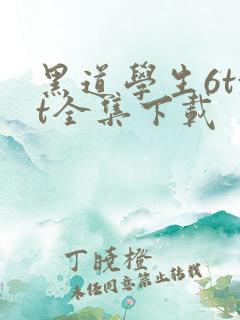 黑道學生6tx
t全集下載
丁曉橙
未經同意禁止轉載